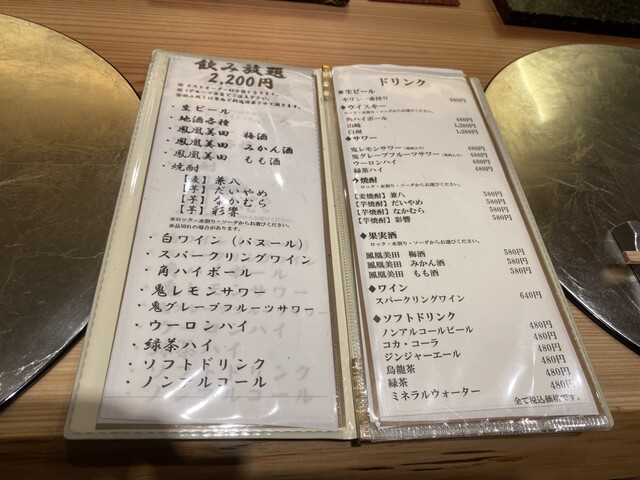 飲み放題
2,200円
・生ビール
・地酒各種
・鳳凰美田 梅酒
・鳳凰美田 みかん酒
・鳳凰美田 もも酒
・焼酎
【麦】兼八
【芋】だいやめ
【芋】なかむら
【芋】彩響
※ロック・水割り・ソーダからお選び下さい。
※品切れの場合があります。
・白ワイン（パヌール）
・スパークリングワイン
・角ハイボール
・鬼レモンサワー
・鬼グレープフルーツサワー
・ウーロンハイ
・緑茶ハイ
・ソフトドリンク
・ノンアルコール
ドリンク
◆生ビール
キリン一番搾り 680円
◆ウイスキー
ロック・水割り・ソーダからお選びください。
角ハイボール 480円
山崎 1,280円
白州 1,280円
◆サワー
鬼レモンサワー 480円
鬼グレープフルーツサワー 480円
ウーロンハイ 480円
緑茶ハイ 480円
◆焼酎
ロック・水割り・ソーダからお選びください。
【麦焼酎】兼八 580円
【芋焼酎】だいやめ 580円
【芋焼酎】なかむら 580円
【芋焼酎】彩響 580円
◆果実酒
ロック・水割り・ソーダからお選びください。
鳳凰美田 梅酒 580円
鳳凰美田 みかん酒 580円
鳳凰美田 もも酒 580円
◆ワイン
スパークリングワイン 640円
◆ソフトドリンク
ノンアルコールビール 480円
コカ・コーラ 480円
ジンジャーエール 480円
烏龍茶 480円
緑茶 480円
ミネラルウォーター 480円
全て税込価格です。